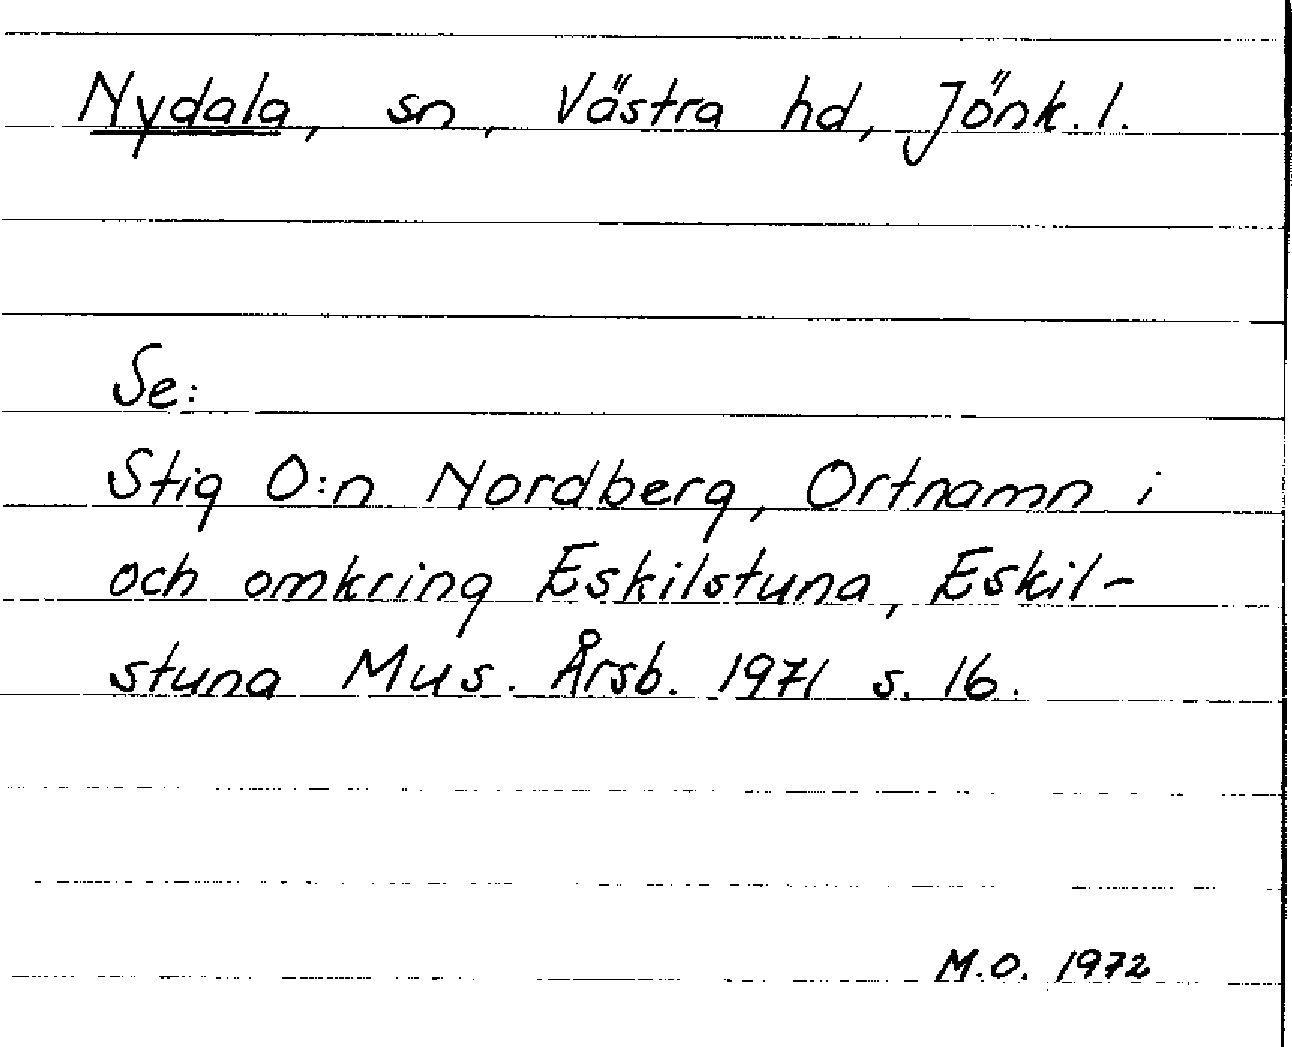 Nydala, sn, Västra hd, Jönk. l.
Se:
Stig O:n Nordberg, Ortnamn i
och omkring Eskilstuna, Eskil-
stuna Mus. Årsb. 1971 s. 16.
M.O. 1972